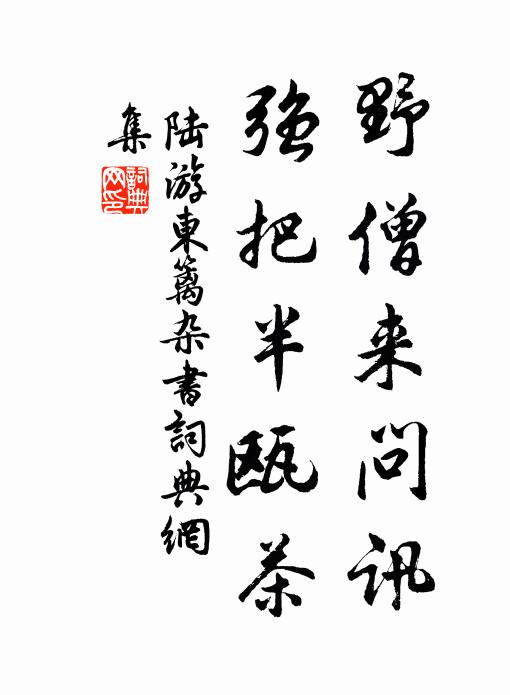 野僧来问讯
强把半瓯茶
陆游東篱杂書詞典網
集
詞典网印